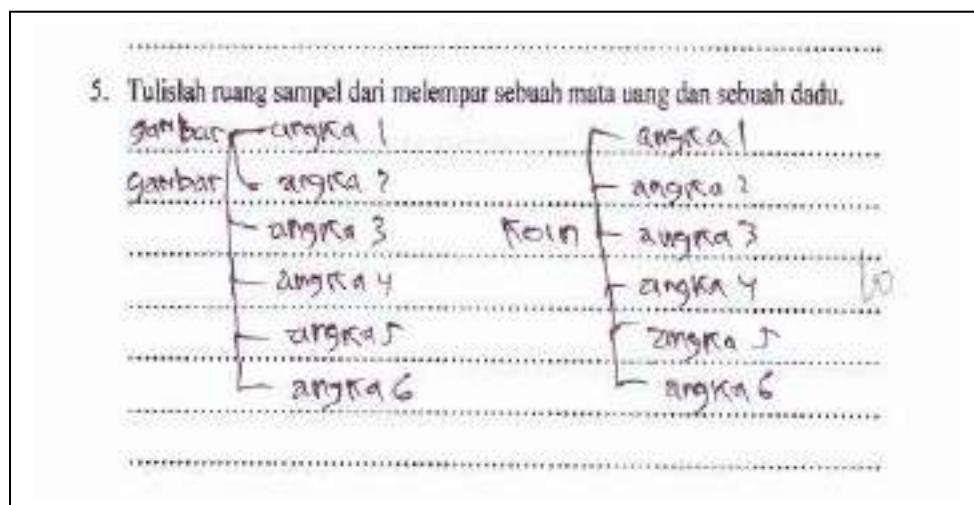 5. Tulislah ruang sampel dari melempar sebuah mata uang dan sebuah dadu.
gambar angka 1 angka 1
gambar angka 2 angka 2
angka 3 Koin angka 3
angka 4 angka 4
angka 5 angka 5
angka 6 angka 6